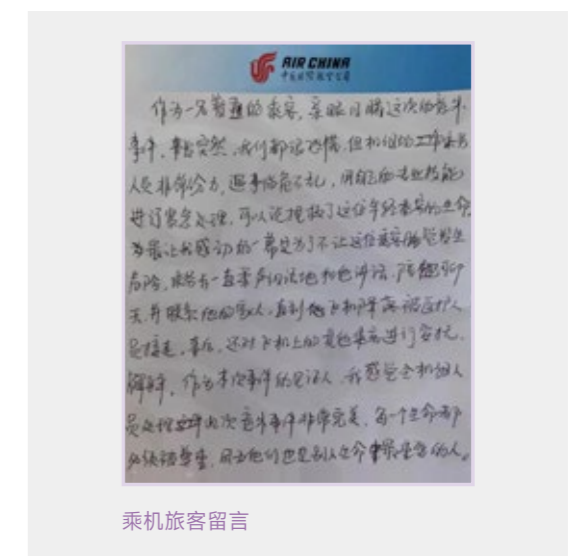 AIR CHINA
中国国际航空公司
作为一名普通的乘客，亲眼目睹这次的意外
事件，事出突然，我们都很恐慌，但机组的工作
人员非常给力，遇事临危不乱，用的专业技能
进行紧急处理，可以说挽救了这位年轻乘客的生命，
最让我感动的一幕是为了不让这位乘客发生
危险，一直在讲话，陪聊
天，并联系他的家人，直到飞机降落被医护人
员接走，事后，还对飞机上的其他乘客进行安抚，
解释，作为本次事件的见证人，我感觉全机组人
员处理此次意外事件非常完美，每一个生命都
必须被尊重，因为他们也是别人生命中最重要的人。
乘机旅客留言